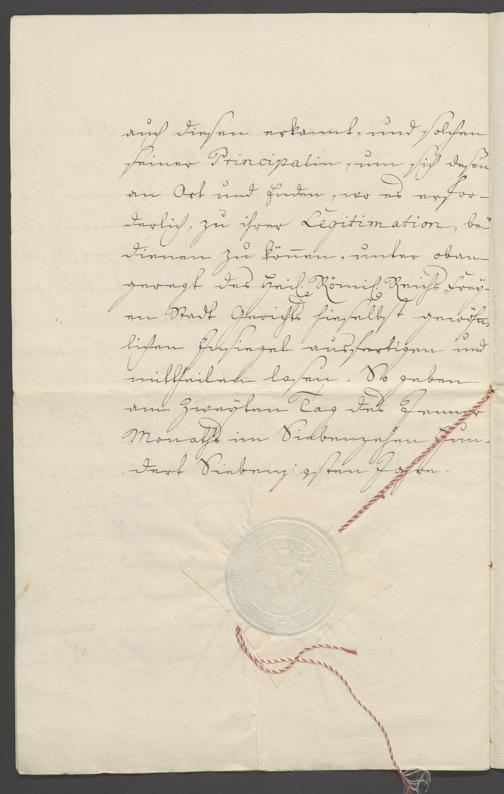 auch diesen erkannt, und solchen
seiner Principalin, um sich deßen
an Ort und Enden, wo es erfor-
derlich, zu ihrer Legitimation, be
dienen zu können, unter oban-
geregt des Heil. Römis. Reichs Frey-
en Stadt Gerichts hieselbst gewöhn
lichen Insiegel ausfertigen und
mittheilen laßen. So geben
am Zweyten Tag des Jenner
Monaths im Siebenzehen Hun-
dert Siebenzigsten Jahre.